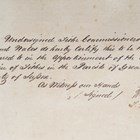 Undersigned Tithe Commissioners
and Wales do hereby Certify this to be a
referred to in the Apportionment of the
of Tithes in the Parish of
of Sussex.
As Witness our Hands
Signed